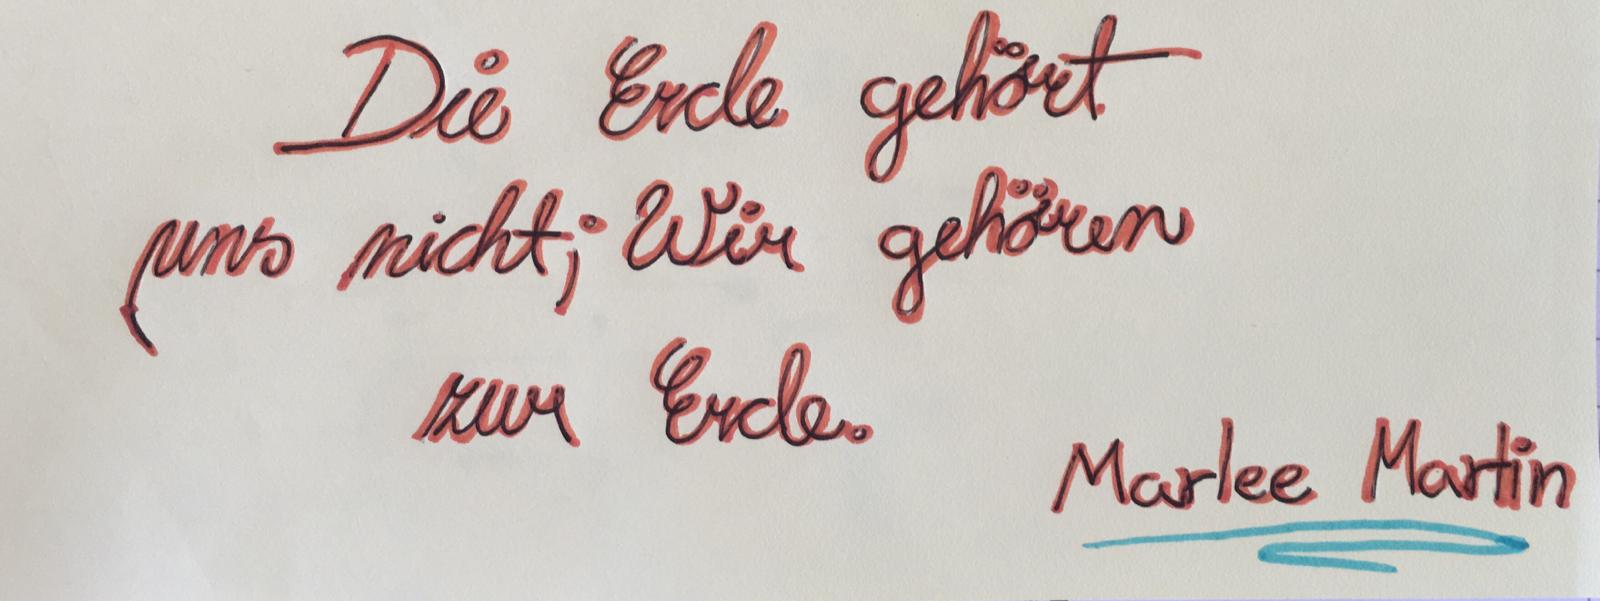 Die Erde gehört
uns nicht; Wir gehören
zur Erde.
Marlee Martin